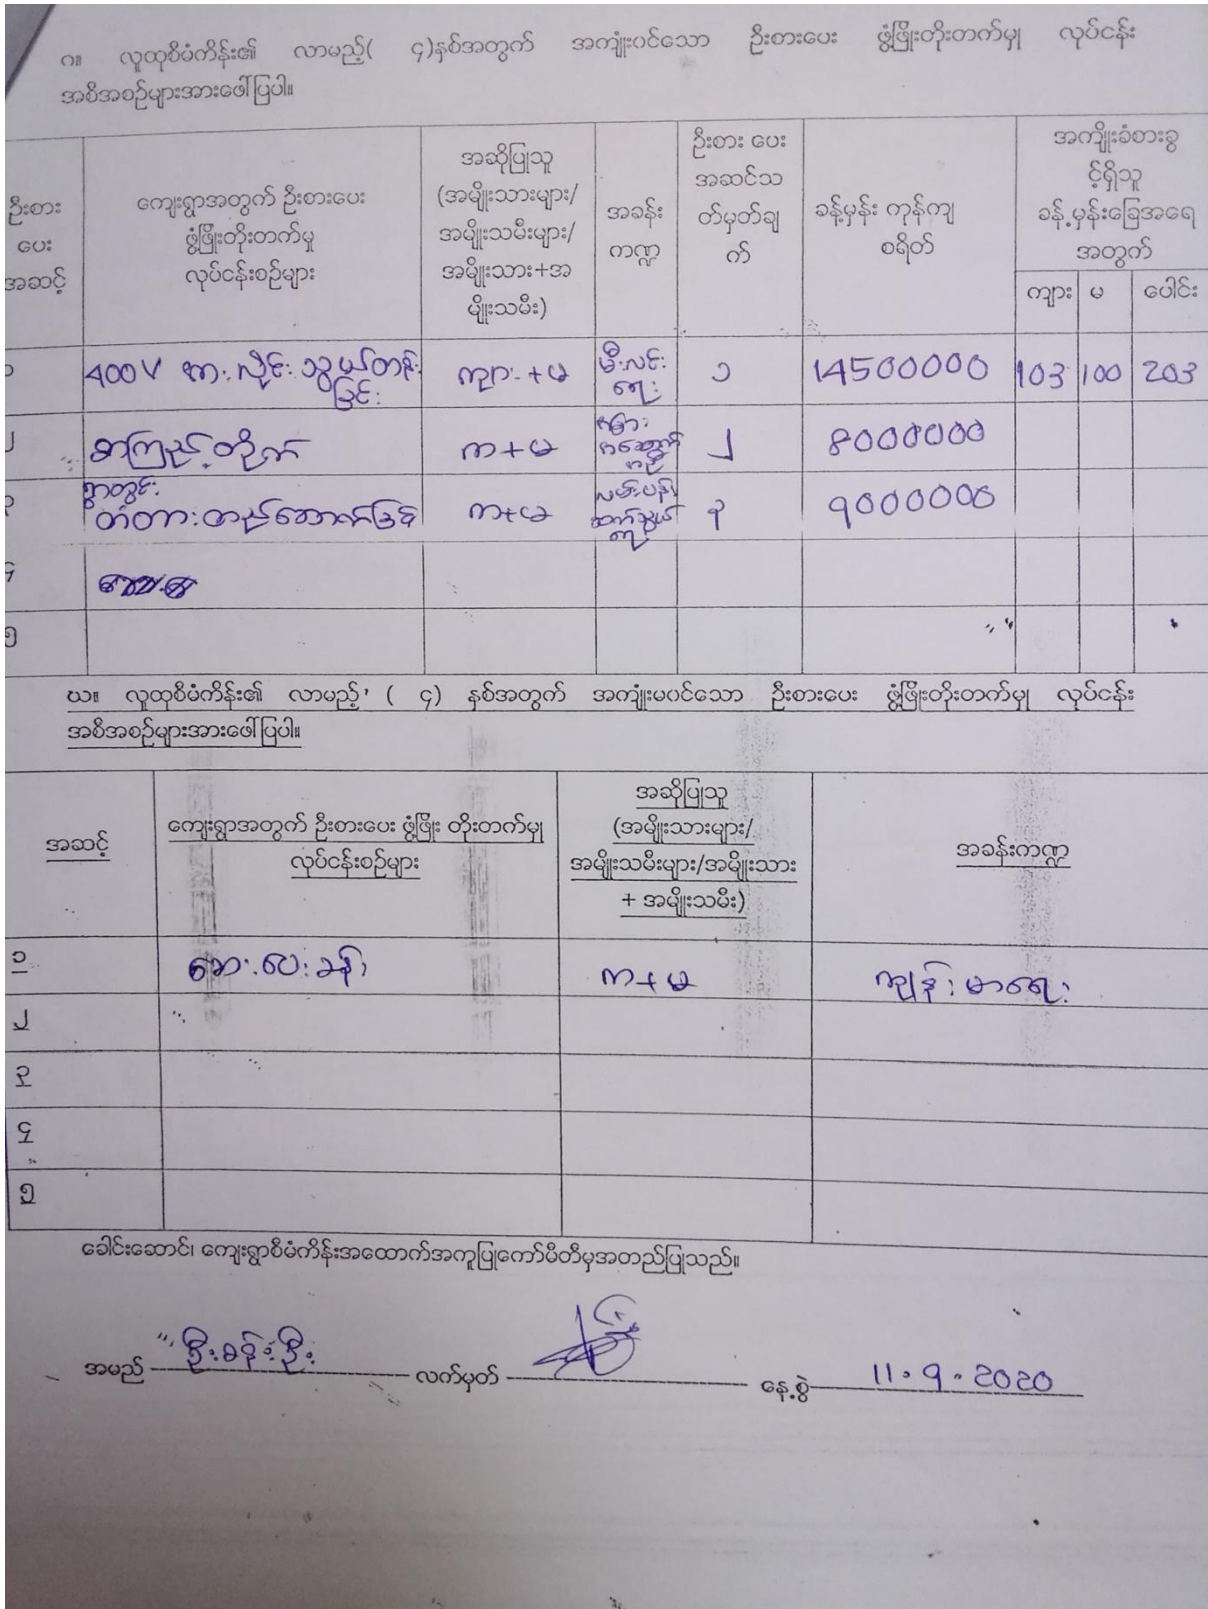 ဂ။ လူထုစီမံကိန်း၏ လာမည့်( ၄)နှစ်အတွက် အကျုံးပင်သော ဦးစားပေး ဖွံ့ဖြိုးတိုးတက်မှု လုပ်ငန်း
အစီအစဉ်များအားဖေါ်ပြပါ။
ဦးစား
ပေး
အဆင့်
ကျေးရွာအတွက် ဦးစားပေး
ဖွံ့ဖြိုးတိုးတက်မှု
လုပ်ငန်းစဉ်များ
အဆိုပြုသူ
(အမျိုးသားများ/
အမျိုးသမီးများ/
အမျိုးသား+အ
မျိုးသမီး)
အခန်း
ကဏ္ဍ
ဦးစား ပေး
အဆင်သ
တ်မှတ်ချ
က်
ခန့်မှန်း ကုန်ကျ
စရိတ်
အကျိုးခံစားခွ
င့်ရှိသူ
ခန့်မှန်းခြေအရေ
အတွက်
ကျား မ ပေါင်း
၁ 400 V ဓား လိုင်း သွယ်တန်း ကျား + မ မီးလင်း ၁ 14500000 103 100 203
ခြင်း ရေး
၂ စာကြည့်တိုက် က + မ ၂ 8000000
၃ ရွာတွင်း လမ်းပန်း
တံတားတည်ဆောက်ခြင်း က+မ ဆက်သွယ် ၃ 9000000
ရေး
၄
၅
ဃ။ လူထုစီမံကိန်း၏ လာမည့် ( ၄) နှစ်အတွက် အကျုံးမပင်သော ဦးစားပေး ဖွံ့ဖြိုးတိုးတက်မှု လုပ်ငန်း
အစီအစဉ်များအားဖေါ်ပြပါ။
အဆင့်
ကျေးရွာအတွက် ဦးစားပေး ဖွံ့ဖြိုး တိုးတက်မှု
လုပ်ငန်းစဉ်များ
အဆိုပြုသူ
(အမျိုးသားများ/
အမျိုးသမီးများ/အမျိုးသား
+ အမျိုးသမီး)
အခန်းကဏ္ဍ
၁ ဆေးပေးခန်း က + မ ကျန်းမာရေး
၂
၃
၄
၅
ခေါင်းဆောင်၊ ကျေးရွာစီမံကိန်းအထောက်အကူပြုကော်မီတီမှအတည်ပြုသည်။
အမည် ဦးခင်ဦး လက်မှတ် နေ့စွဲ 11.9.2020